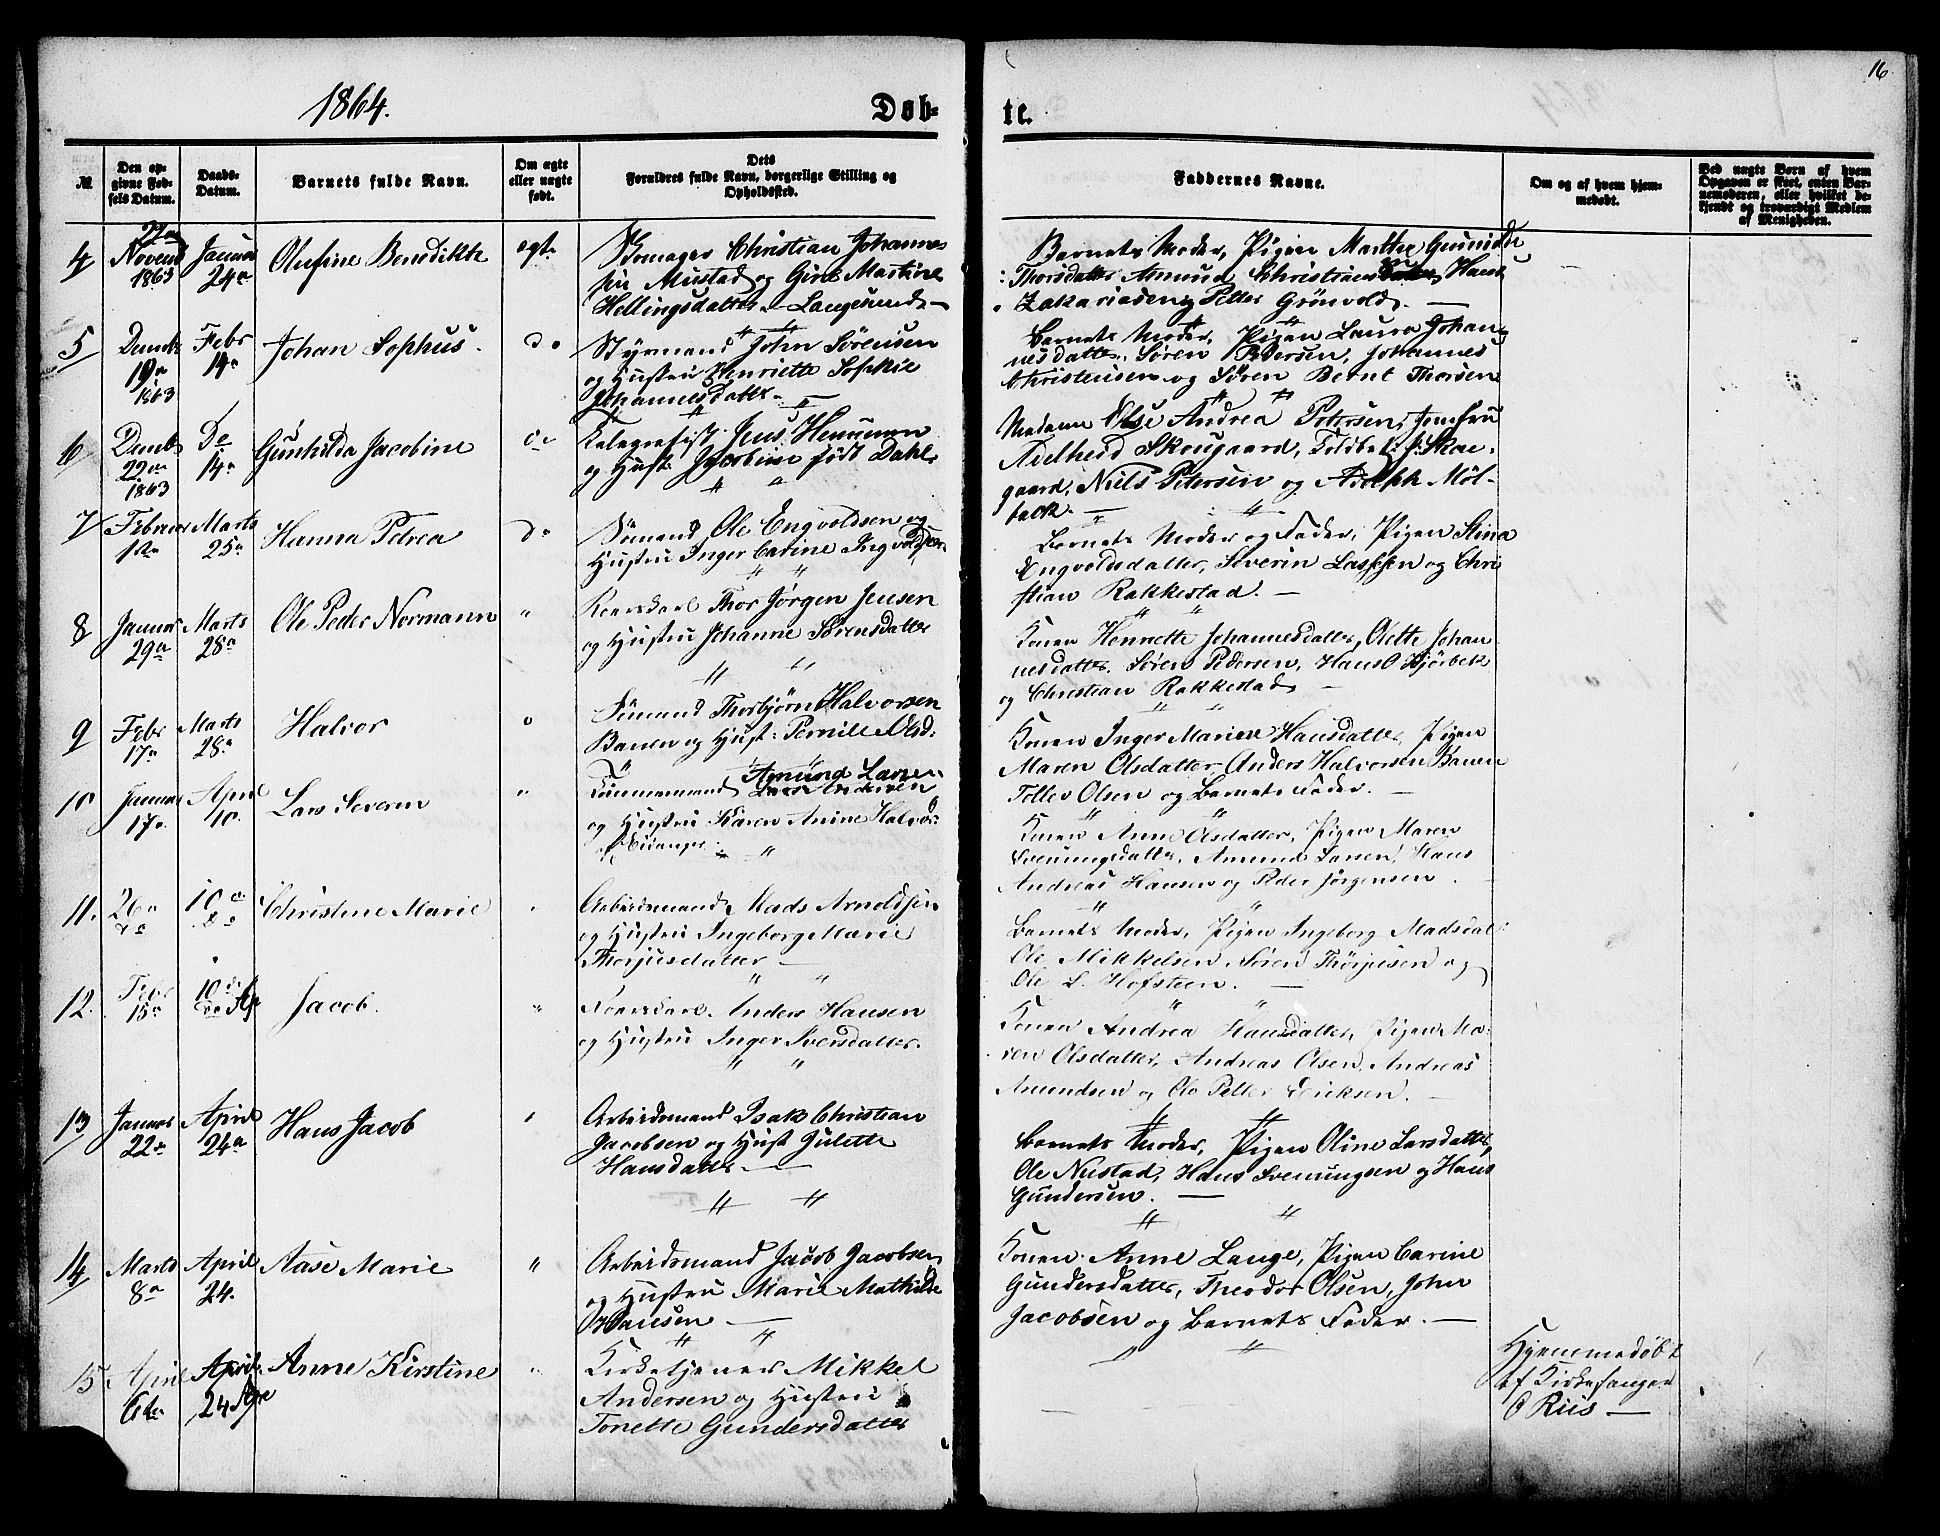 16
1864.
Døb-
te.
№
Den op-
givne Fød-
sels Datum.
Daabs-
Datum.
Barnets fulde Navn.
Om ægte
eller uægte
født.
Dets
Forældres fulde Navn, borgerlige Stilling og
Opholdssted.
Faddernes Navne.
Om og af hvem hjem-
medøbt.
Ved uægte Børn af hvem
Opgaven er skeet, enten Bar-
nemoderen, eller hvilket be-
kjendt og troværdigt Medlem
af Menigheden.
4
Novemb
1863
Januar
24
Olufine Benedikte
ægt.
Skomager Christian Johannes
sen Mustad og Gine Martine
Hellingsdatter - Langesund -
Barnets Moder, Pigen Marthe Gunnilde
Thorsdatter Amund Christiansen, Hans
Zakariasen og Petter Grönvold. —
5
Decmb
19
1863
Febr
14
Johan Sophus.
do
Styrmand John Sörensen
og Hustru Henriette Sophie
Johannesdatter. —
Barnets Moder, Pigen Laura Johan-
nesdatter. Sören Pedersen, Johannes
Christensen og Sören Bernt Thorsen
6
Decmb
22
1863
Do
14
Gunhilda Jacobine
Telegrafist Jens Hermann
og Hust. Jacobine født Dahl.
Madam Else Andrea Petersen, Jomfru
Adelheid Skougaard, Toldbetj: J: Skou-
gaard, Niels Petersen og Adolph Möl-
back. —
7
Februar
1
Marts
25
Hanna Petrea
do
Sömand Ole Engvoldsen og
Hustru Inger Carine Ingvoldsen
Barnets Moder og Fader, Pigen Stina
Engvoldsdatter, Severin Lassesen og Chri
stian Rakkestad. —
8
Januar
29
Marts
28
Ole Peder Normann
"
Thor Jörgen Jensen
og Hustru Johanne Sörensdatter
Konen Henriette Johannesdatter, Olette Johan
nesdatter. Sören Pedersen, Hans Hjörbek
og Christian Rakkestad —
9
Febr
17
Marts
28
Halvor
Sömand Thorbjörn Halvorsen
Banen og Hust: Pernille Olsd:
Konen Inger Marie Hansdatter, Pigen
Maren Olsdatter, Anders Halvorsen Banen
Tollev Olsen og Barnets Fader. —
10
Januar
17
April
10.
Lars Severin
"
Tömmermand Amund Larsen
og Hustru Karen Anine Halvor:
Konen Anne Olsdatter, Pigen Maren
Svenningsdatter, Amund Larsen, Hans
Andreas Hansen og Peder Jörgensen.
11.
26
do
10
do
Christine Marie
Arbeidsmand Mads Arnoldsen
og Hustru Ingeborg Marie
Thorjusdatter —
Barnets Moder, Pigen Ingeborg Madsdat:
Ole Mikkelsen, Sören Thorjusen og
Ole L. Hofsteen. —
12.
Febr
15
10
do Ap
Jacob.
"
Anders Hansen
og Hustru Inger Iversdatter.
Konen Andrea Hansdatter, Pigen Ma-
ren Olsdatter, Andreas Olsen, Andreas
Amundsen og Ole Petter Eriksen. —
13
Januar
22
April
24
Hans Jacob
Arbeidsmand Isak Christian
Jacobsen og Hust Julette
Hansdatter —
Barnets Moder, Pigen Oline Larsdatter,
Ole Nustad, Hans Svenningsen og Hans
Gundersen. —
14
Marts
8
April
24.
Aase Marie
"
Arbeidsmand Jacob Jacobsen
og Hustru Marie Mathilde
Hansen —
Konen Anne Lange, Pigen Carine
Gundersdatter, Theodor Olsen, John
Jacobsen og Barnets Fader. —
15
April
6
April
24
Anne Kirstine
Kirketjener Mikkel
Andersen og Hustru
Tonette Gundersdatter
Hjemmedøbt
af Kirkesanger
O Riis —